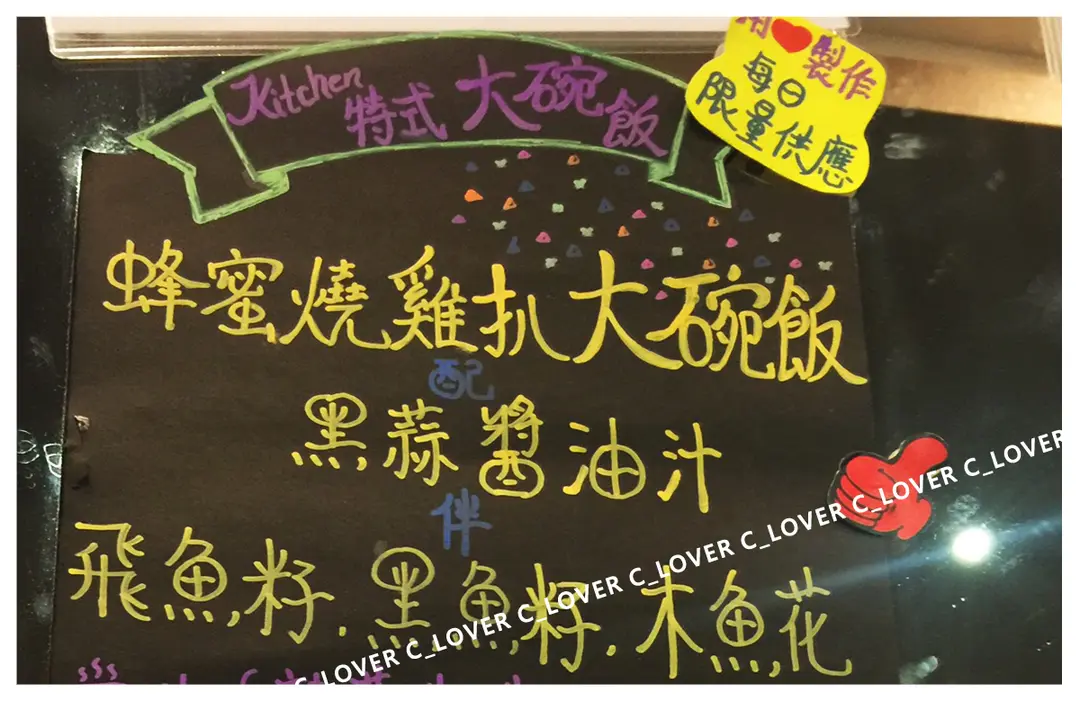 Kitchen 特式 大碗飯
用❤製作
每日
限量供應
蜂蜜燒雞扒大碗飯
配
黑蒜醬油汁
伴
飛魚籽.黑魚籽.木魚花
C_LOVER C_LOVER C_LOVER C_LOVER C_LOVER C_LOVER C_LOVER